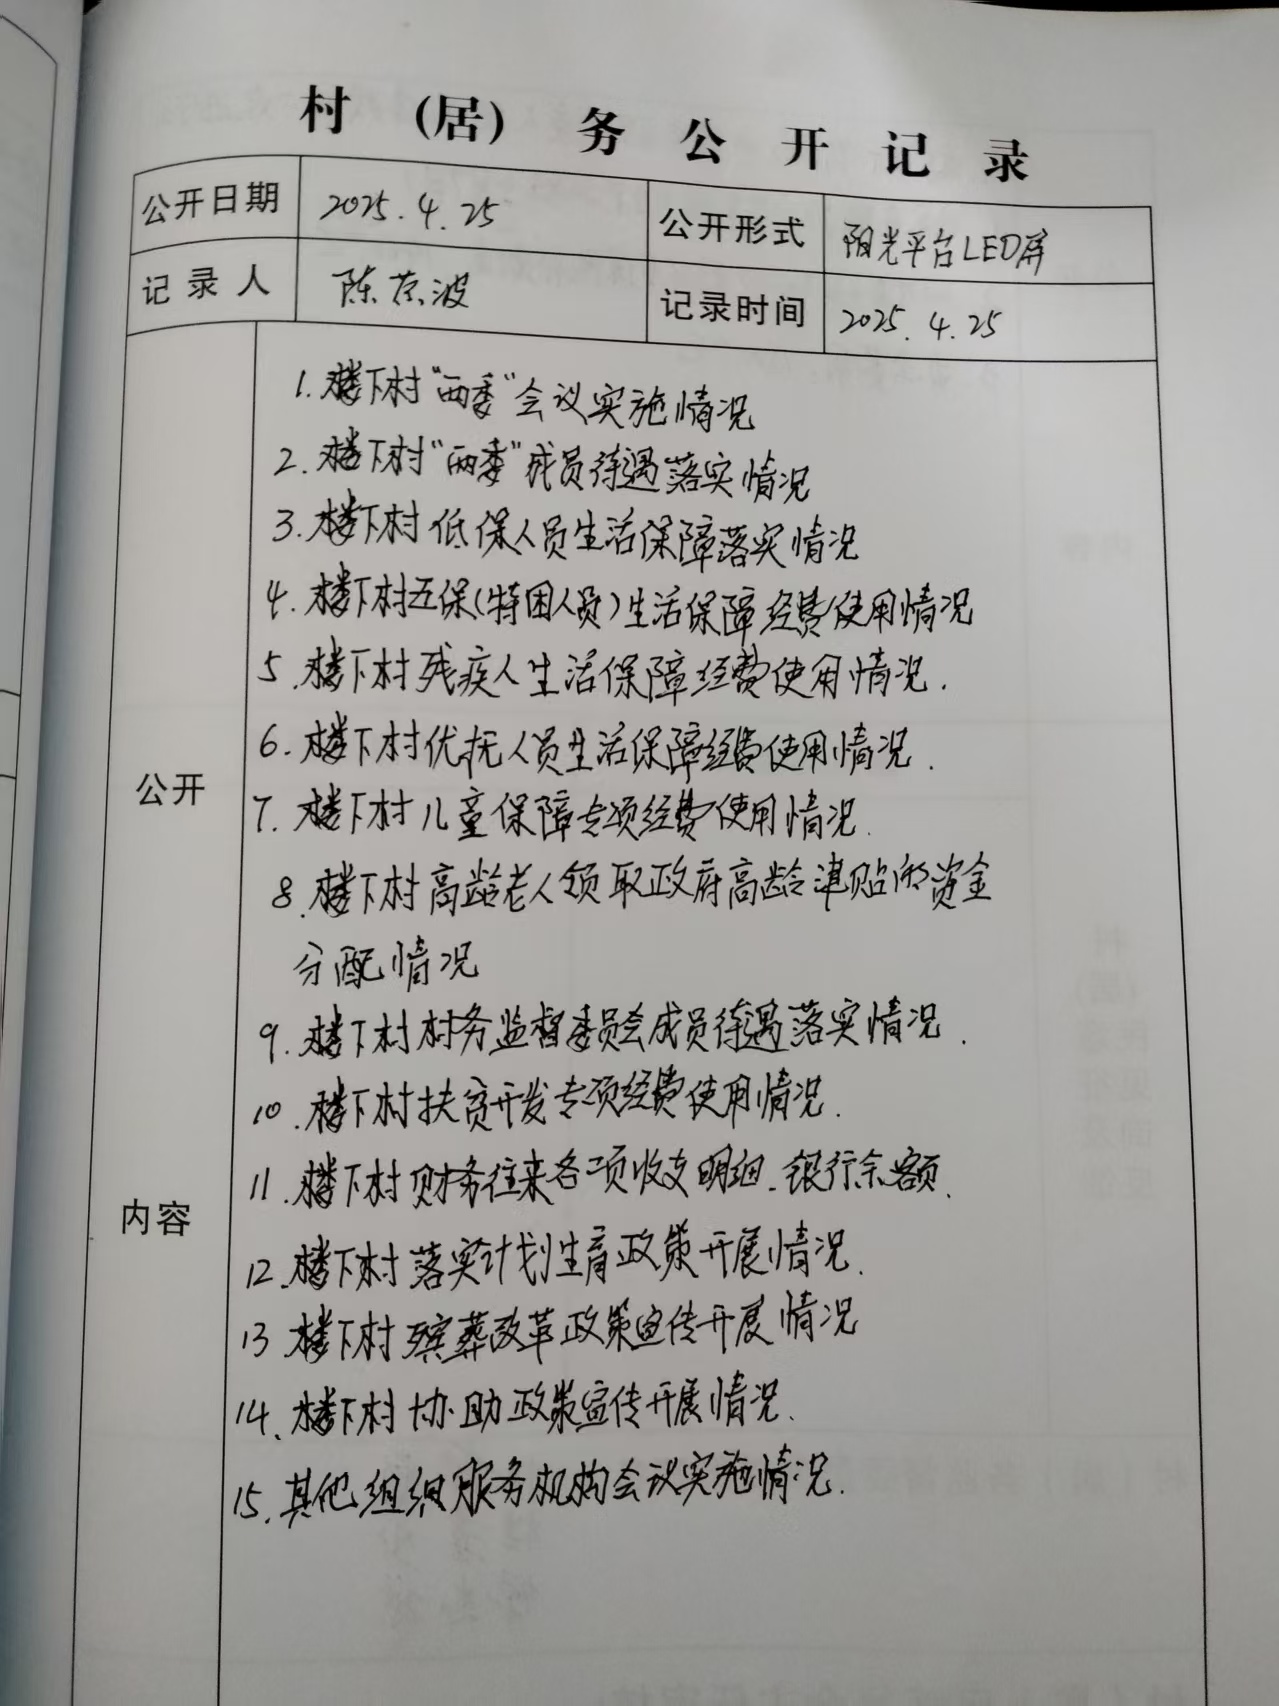 村(居)务公开记录
公开日期 2025.4.25 公开形式 阳光平台LED屏
记录人 陈 波 记录时间 2025.4.25
1.楼下村“两委”会议实施情况
2.楼下村“两委”成员待遇落实情况
3.楼下村低保人员生活保障落实情况
4.楼下村五保(特困人员)生活保障经费使用情况
5.楼下村残疾人生活保障经费使用情况.
6.楼下村优抚人员生活保障经费使用情况.
公开
7.楼下村儿童保障专项经费使用情况.
8.楼下村高龄老人领取政府高龄津贴的资金
分配情况
9.楼下村村务监督委员会成员待遇落实情况.
10.楼下村扶贫开发专项经费使用情况.
11.楼下村财务往来各项收支明细、银行余额.
内容
12.楼下村落实计划生育政策开展情况.
13 楼下村殡葬改革政策宣传开展情况
14、楼下村协助政策宣传开展情况.
15.其他组织服务机构会议实施情况.